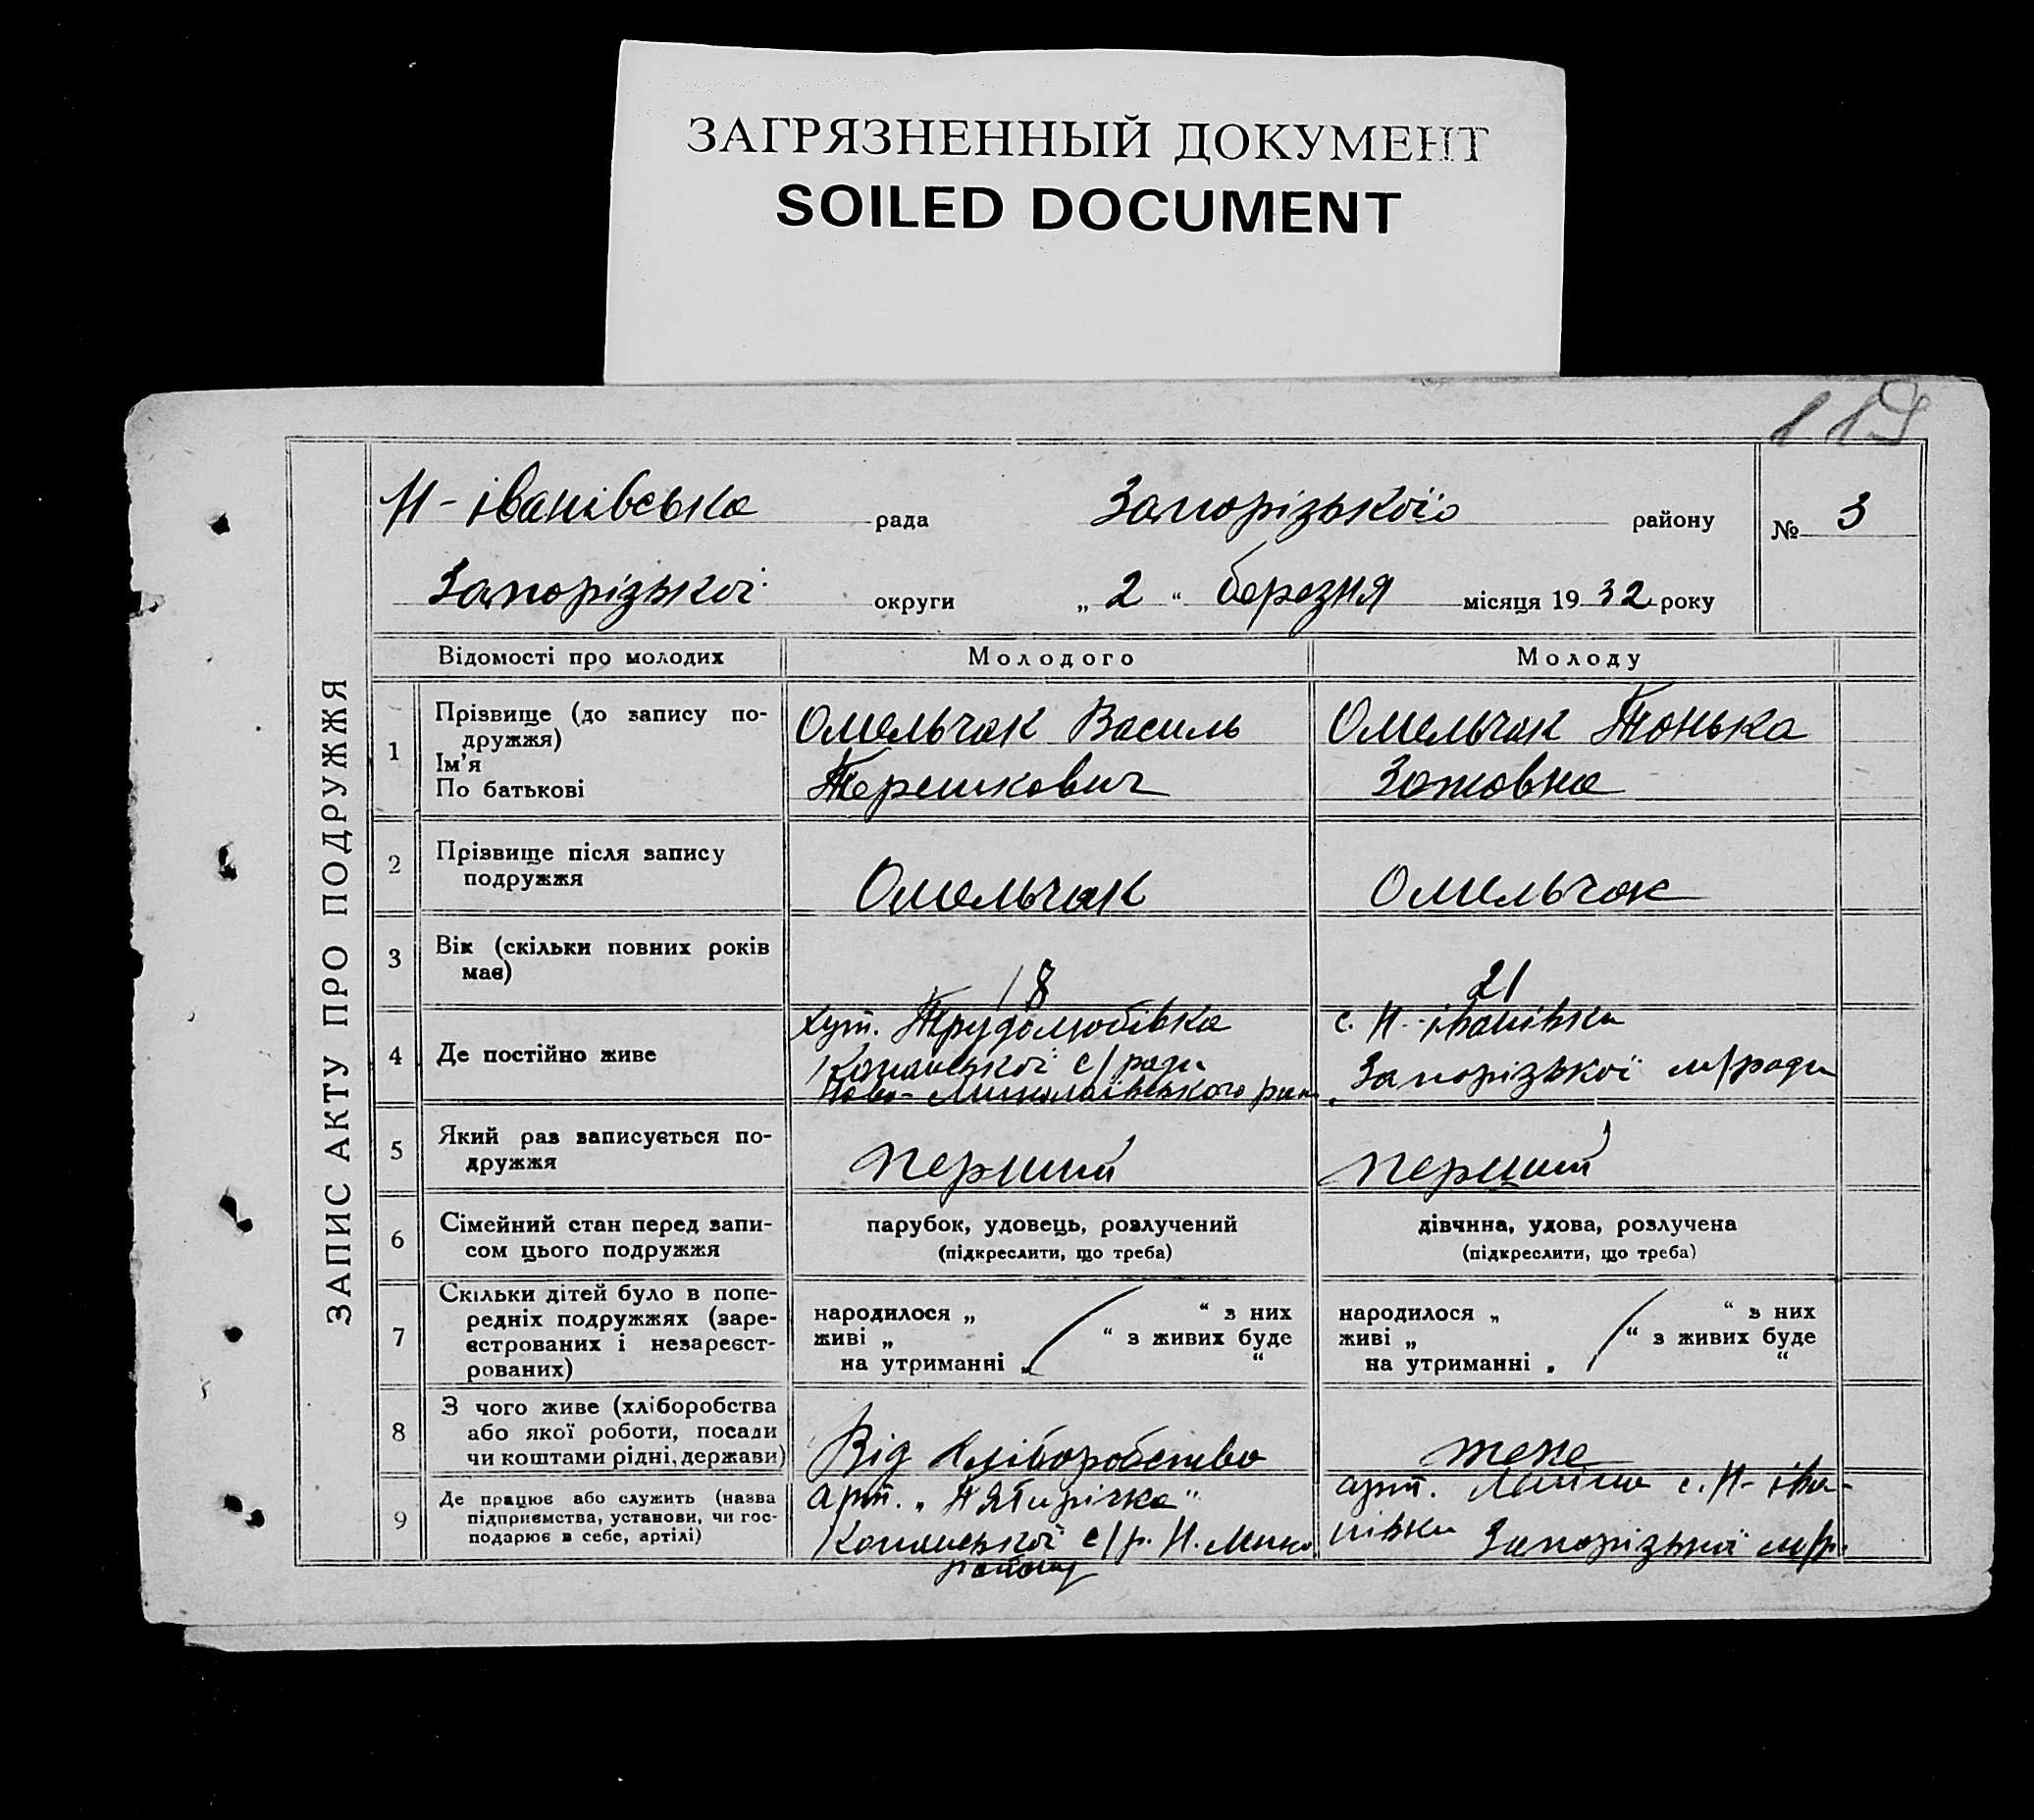 ЗАГРЯЗНЕННЫЙ ДОКУМЕНТ
SOILED DOCUMENT
ЗАПИС АКТУ ПРО ПОДРУЖЖЯ
Н-іванівська рада Запорізького району № 3
Запорізької округи „ 2 “ березня місяця 1932 року
Відомості про молодих Молодого Молоду
1 Прізвище (до запису по-
дружжя)
Ім'я
По батькові
Омельчак Василь
Терешкович
Омельчак Тонька
Зотовна
2 Прізвище після запису
подружжя
Омельчак Омельчак
3 Вік (скільки повних років
має)
18 21
4 Де постійно живе
хут. Трудолюбівка
Копанської с/ради
Ново-Миколаївського рай.
с. Н-іванівка
Запорізької м/ради
5 Який раз записується по-
дружжя
перший перший
6 Сімейний стан перед запи-
сом цього подружжя
парубок, удовець, розлучений
(підкреслити, що треба)
дівчина, удова, розлучена
(підкреслити, що треба)
7 Скільки дітей було в попе-
редніх подружжях (заре-
єстрованих і незареєст-
рованих)
народилося „ “ з них
живі „ “ з живих буде
на утриманні „ “
народилося „ “ з них
живі „ “ з живих буде
на утриманні „ “
8 З чого живе (хліборобства
або якої роботи, посади
чи коштами рідні, держави)
Від хліборобства
теже
9 Де працює або служить (назва
підприємства, установи, чи гос-
подарює в себе, артілі)
арт. „Пятирічка“
Копанської с/р. Н. Мико
району
арт. с. Н-іва-
нівки Запорізької м/р.